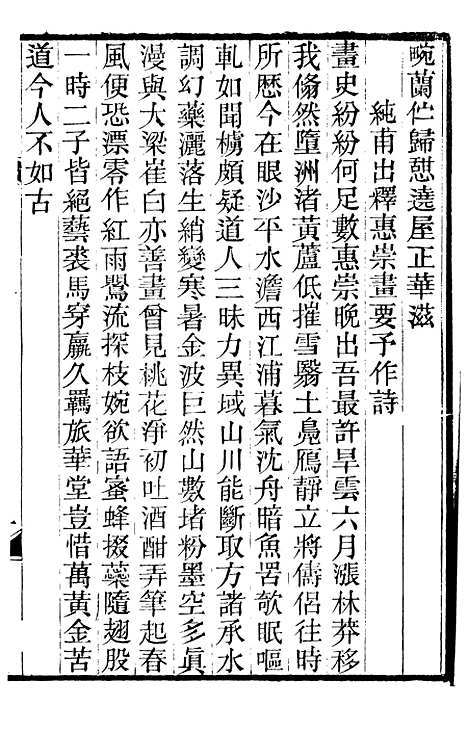 畹蘭伫歸愬遶屋正華滋
純甫出釋惠崇畫要予作詩
畫史紛紛何足數惠崇晚出吾最許旱雲六月漲林莽移
我翛然墮洲渚黃蘆低摧雪翳土鳧鴈靜立將儔侶往時
所歷今在眼沙平水澹西江浦暮氣沈舟暗魚罟欹眠嘔
軋如聞櫓頗疑道人三昧力異域山川能斷取方諸承水
調幻藥灑落生綃變寒暑金波巨然山數堵粉墨空多真
漫與大梁崔白亦善畫曾見桃花淨初吐酒酣弄筆起春
風便恐漂零作紅雨鸎流探枝婉欲語蜜蜂掇蘂隨翅股
一時二子皆絕藝裘馬穿羸久羈旅華堂豈惜萬黃金苦
道今人不如古